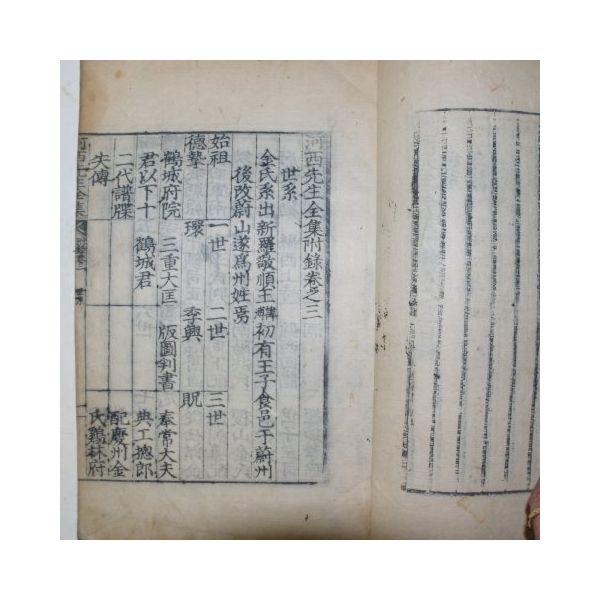 河西先生全集附錄卷之三
世系
金氏系出新羅敬順王諱傅初有王子食邑于蔚州
後改蔚山遂爲州姓焉
始祖 一世 二世 三世
德摯 環 季興 貺
鶴城府院 三重大匡 版圖判書 奉常大夫
君以下十 鶴城君 典工摠郎
二代譜牒 配慶州金
失傳 氏鷄林府